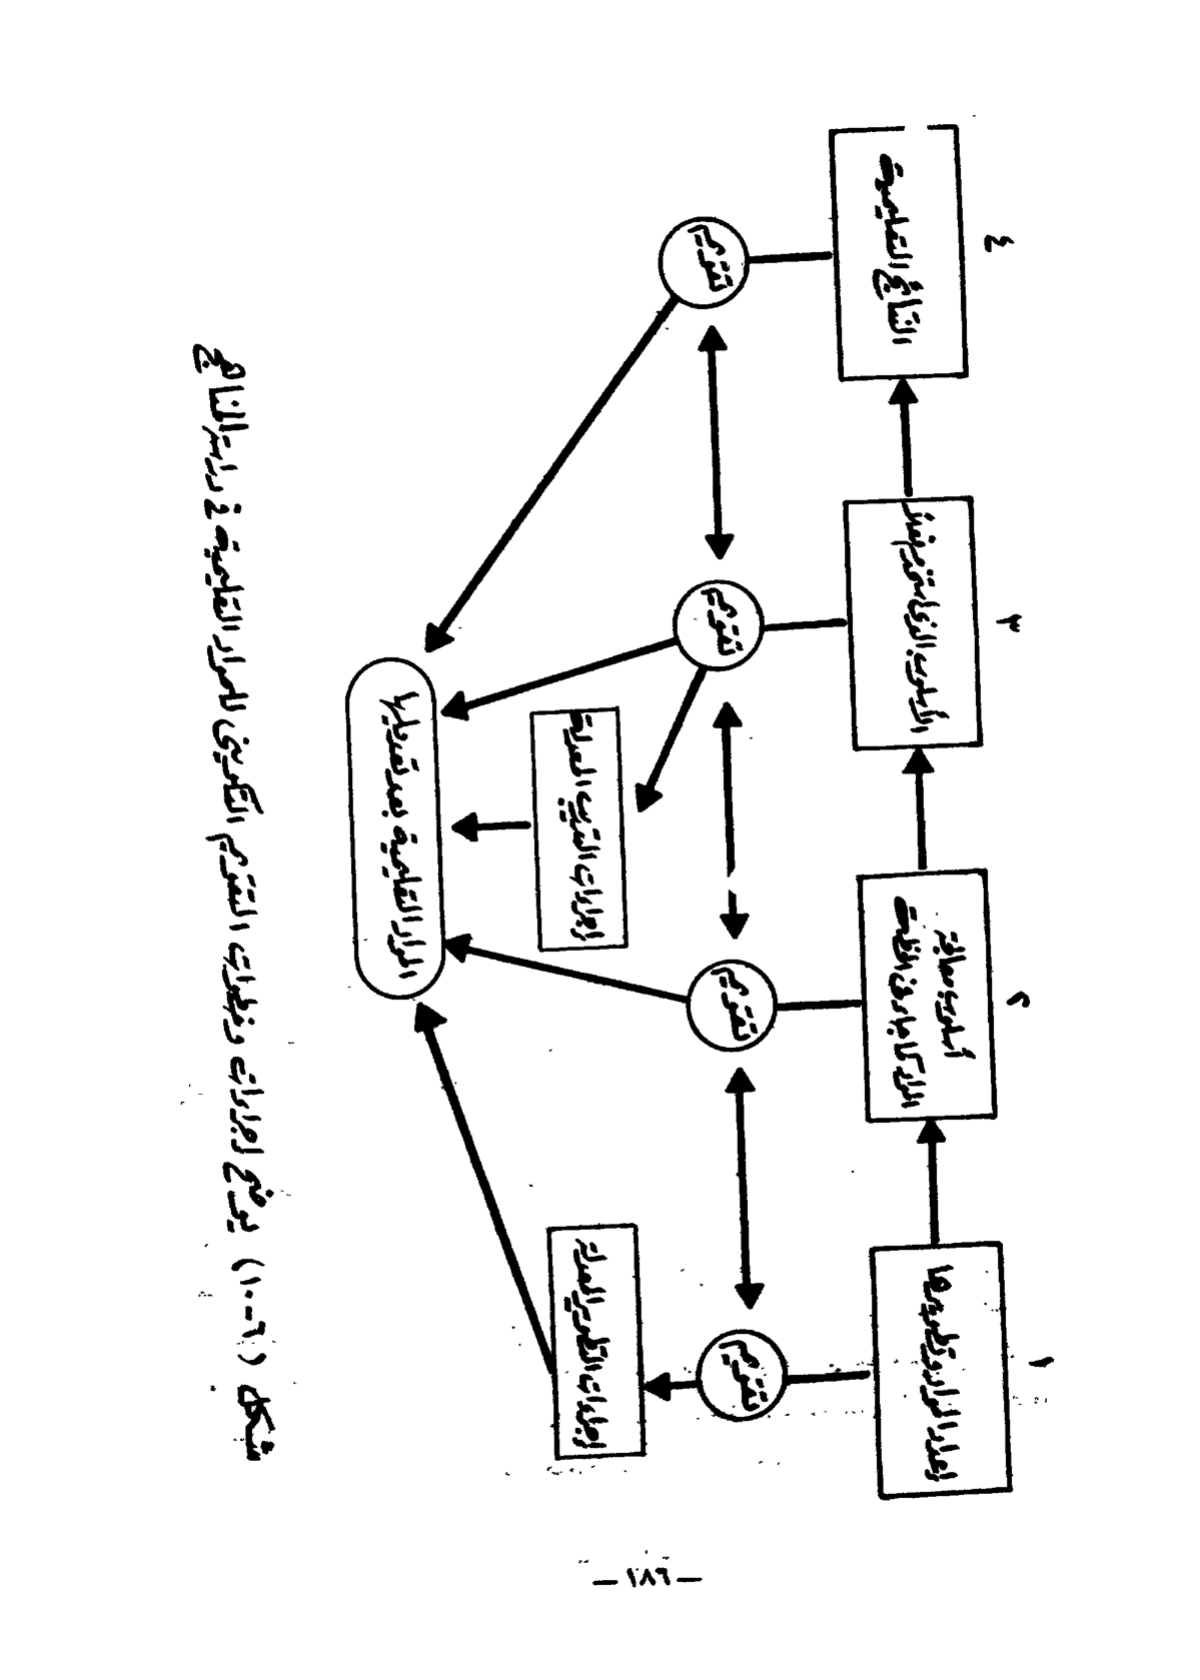 ١
إعداد المواد وتطويرها
٢
أسلوب معالجة
المواد كما جاء في الخطة
٣
الأسلوب الذي استخدم فعلاً
٤
النتائج التعليمية
تقويم
تقويم
تقويم
تقويم
إجراءات التطوير المعدلة
إجراءات التدريب المعدلة
المواد التعليمية بعد تعديلها
شكل (٦-١٠) يوضح إجراءات وخطوات التقويم التكويني للمواد التعليمية في دراسة المناهج
— ١٨٦ —